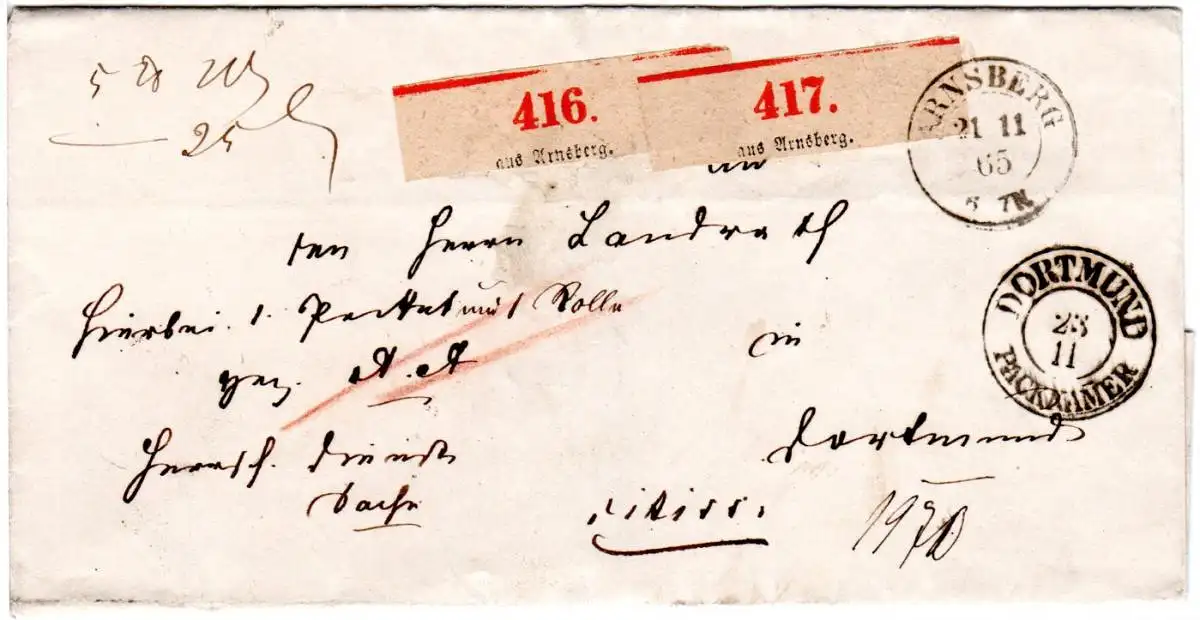 416.
aus Arnsberg.
417.
aus Arnsberg.
ARNSBERG
21 11
65
25
An
den Herrn Landrath
Hierbei 1 Packet und Rolle
gez. A. A
in
DORTMUND
23
11
PACKKAMMER
Herrsch. Dienst
Sache
Dortmund
citiss.
1970